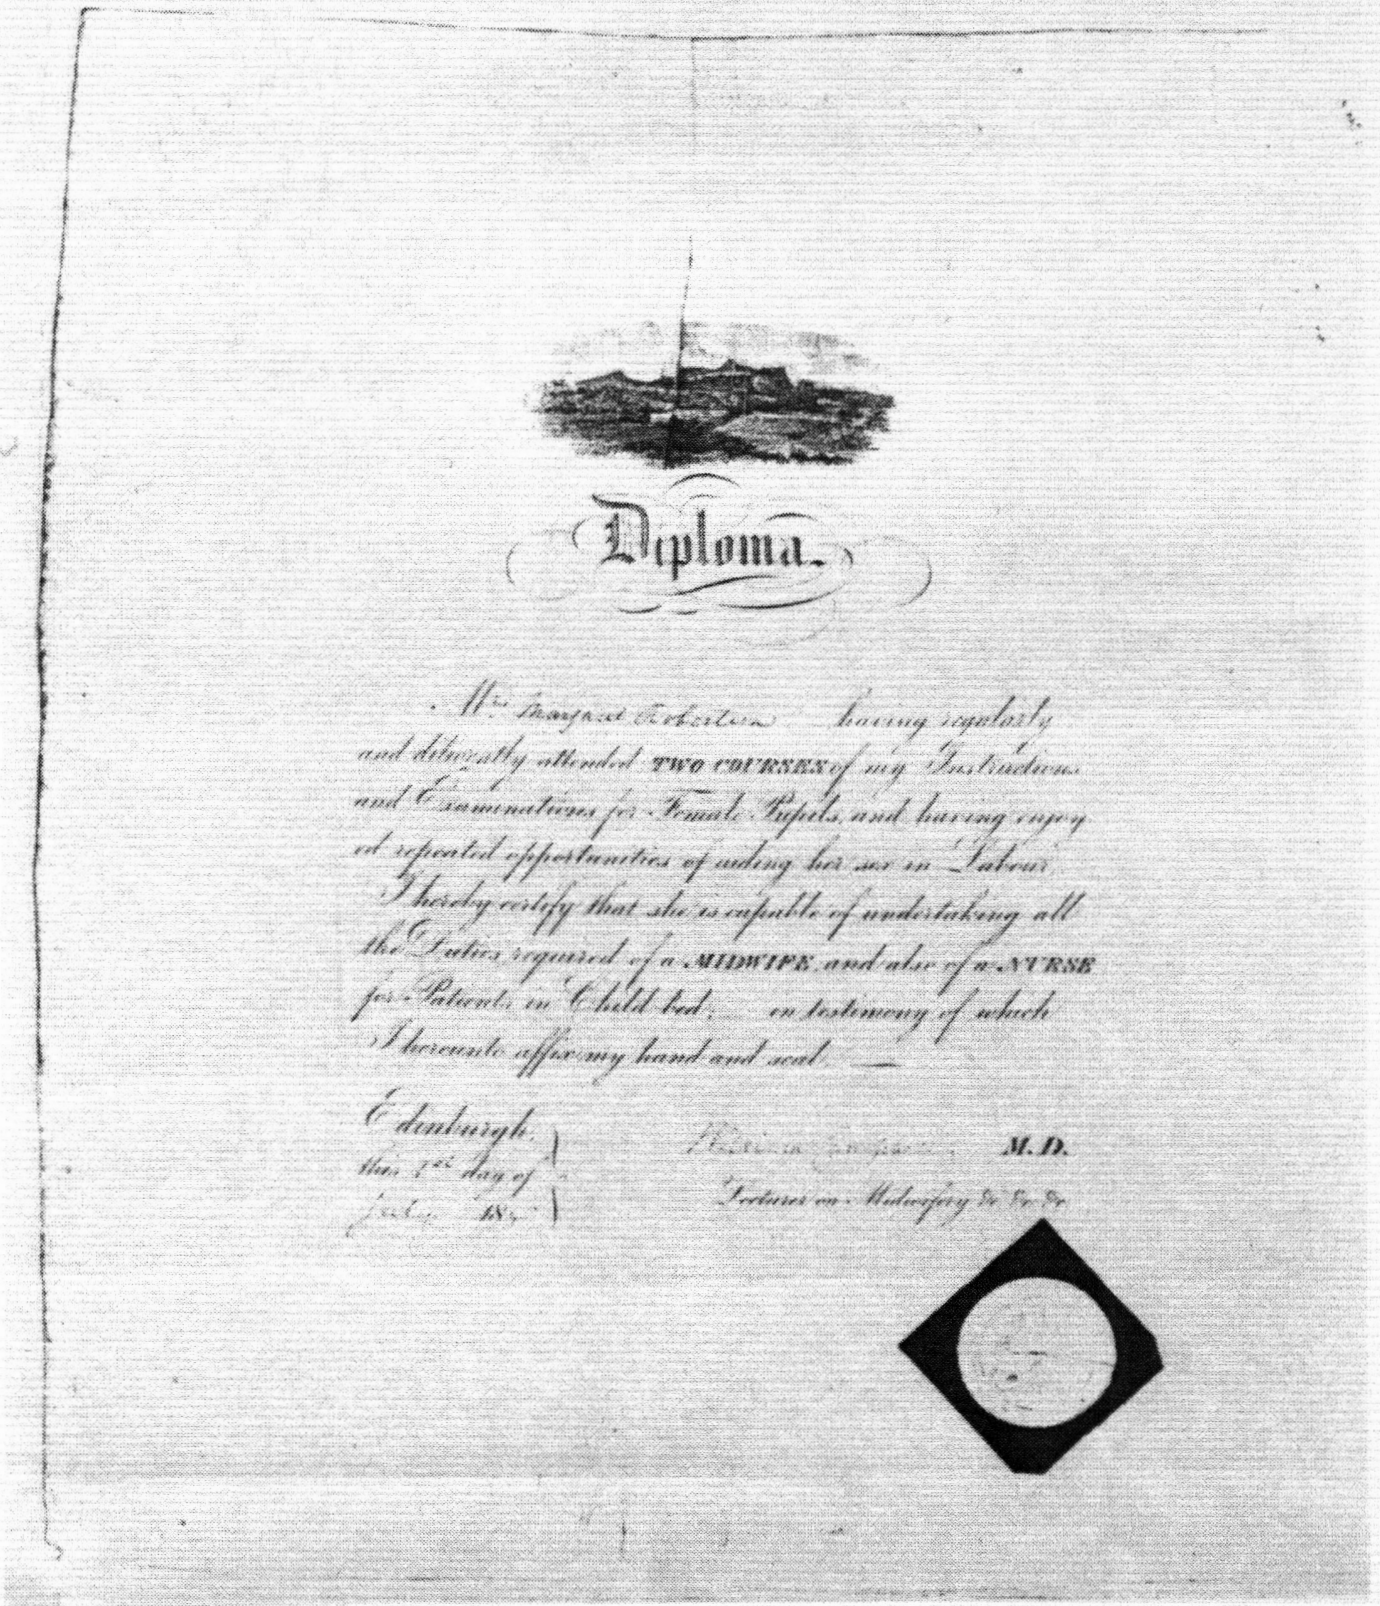 Diploma.
Mrs Margaret Robertson having regularly
and diligently attended TWO COURSES of my Instructions
and Examinations for Female Pupils, and having enjoy
ed repeated opportunities of aiding her sex in Labour,
I hereby certify that she is capable of undertaking all
the Duties required of a MIDWIFE, and also of a NURSE
for Patients in Child-bed; in testimony of which
I hereunto affix my hand and seal. —
Edinburgh,
this 1st day of
July 18
M.D.
Lecturer on Midwifery &c &c &c